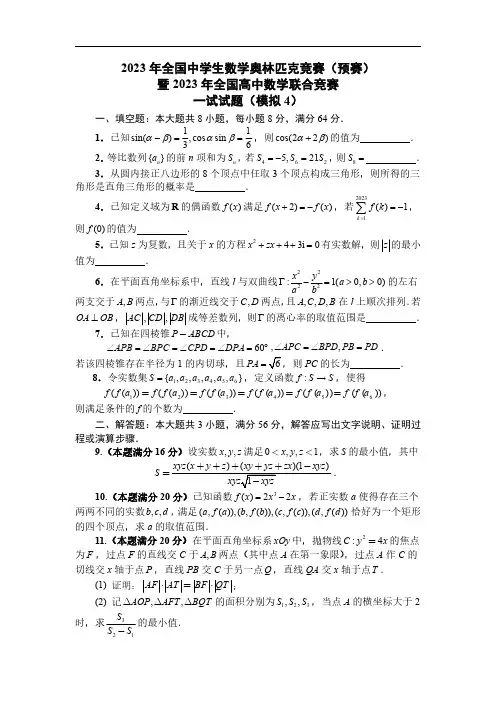 2023年全国中学生数学奥林匹克竞赛（预赛）
暨 2023年全国高中数学联合竞赛
一试试题（模拟 4）
一、填空题：本大题共 8 小题，每小题 8 分，满分 64 分．
1．已知 sin(α − β) = 1/3, cos α sin β = 1/6，则 cos(2α + 2β) 的值为 ．
2．等比数列 {aₙ} 的前 n 项和为 Sₙ，若 S₄ = −5, S₆ = 21S₂，则 S₈ = ．
3．从圆内接正八边形的 8 个顶点中任取 3 个顶点构成三角形，则所得的三
角形是直角三角形的概率是 ．
4．已知定义域为 R 的偶函数 f(x) 满足 f(x + 2) = −f(x)，若 ∑_{k=1}^{2023} f(k) = −1，
则 f(0) 的值为 ．
5．已知 z 为复数，且关于 x 的方程 x² + zx + 4 + 3i = 0 有实数解，则 |z| 的最小
值为 ．
6．在平面直角坐标系中，直线 l 与双曲线 Γ: x²/a² − y²/b² = 1(a > 0, b > 0) 的左右
两支交于 A, B 两点，与 Γ 的渐近线交于 C, D 两点，且 A, C, D, B 在 l 上顺次排列．若
OA ⊥ OB，|AC|, |CD|, |DB| 成等差数列，则 Γ 的离心率的取值范围是 ．
7．已知在四棱锥 P − ABCD 中，
∠APB = ∠BPC = ∠CPD = ∠DPA = 60°, ∠APC = ∠BPD, PB = PD．
若该四棱锥存在半径为 1 的内切球，且 PA = √6，则 PC 的长为 ．
8．令实数集 S = {a₁, a₂, a₃, a₄, a₅, a₆}，定义函数 f : S → S，使得
f(f(a₁)) = f(f(a₂)) = f(f(a₃)) = f(f(a₄)) = f(f(a₅)) = f(f(a₆))，
则满足条件的 f 的个数为 ．
二、解答题：本大题共 3 小题，满分 56 分，解答应写出文字说明、证明过
程或演算步骤．
9.（本题满分 16 分）设实数 x, y, z 满足 0 < x, y, z < 1，求 S 的最小值，其中
S = (xyz(x + y + z) + (xy + yz + zx)(1 − xyz))/(xyz√(1 − xyz))．
10.（本题满分 20 分）已知函数 f(x) = 2x³ − 2x，若正实数 a 使得存在三个
两两不同的实数 b, c, d，满足 (a, f(a)), (b, f(b)), (c, f(c)), (d, f(d)) 恰好为一个矩形
的四个顶点，求 a 的取值范围．
11.（本题满分 20 分）在平面直角坐标系 xOy 中，抛物线 C: y² = 4x 的焦点
为 F，过点 F 的直线交 C 于 A, B 两点（其中点 A 在第一象限），过点 A 作 C 的
切线交 x 轴于点 P，直线 PB 交 C 于另一点 Q，直线 QA 交 x 轴于点 T．
(1) 证明：|AF|·|AT| = |BF|·|QT|；
(2) 记 △AOP, △AFT, △BQT 的面积分别为 S₁, S₂, S₃，当点 A 的横坐标大于 2
时，求 S₃/(S₂ − S₁) 的最小值．